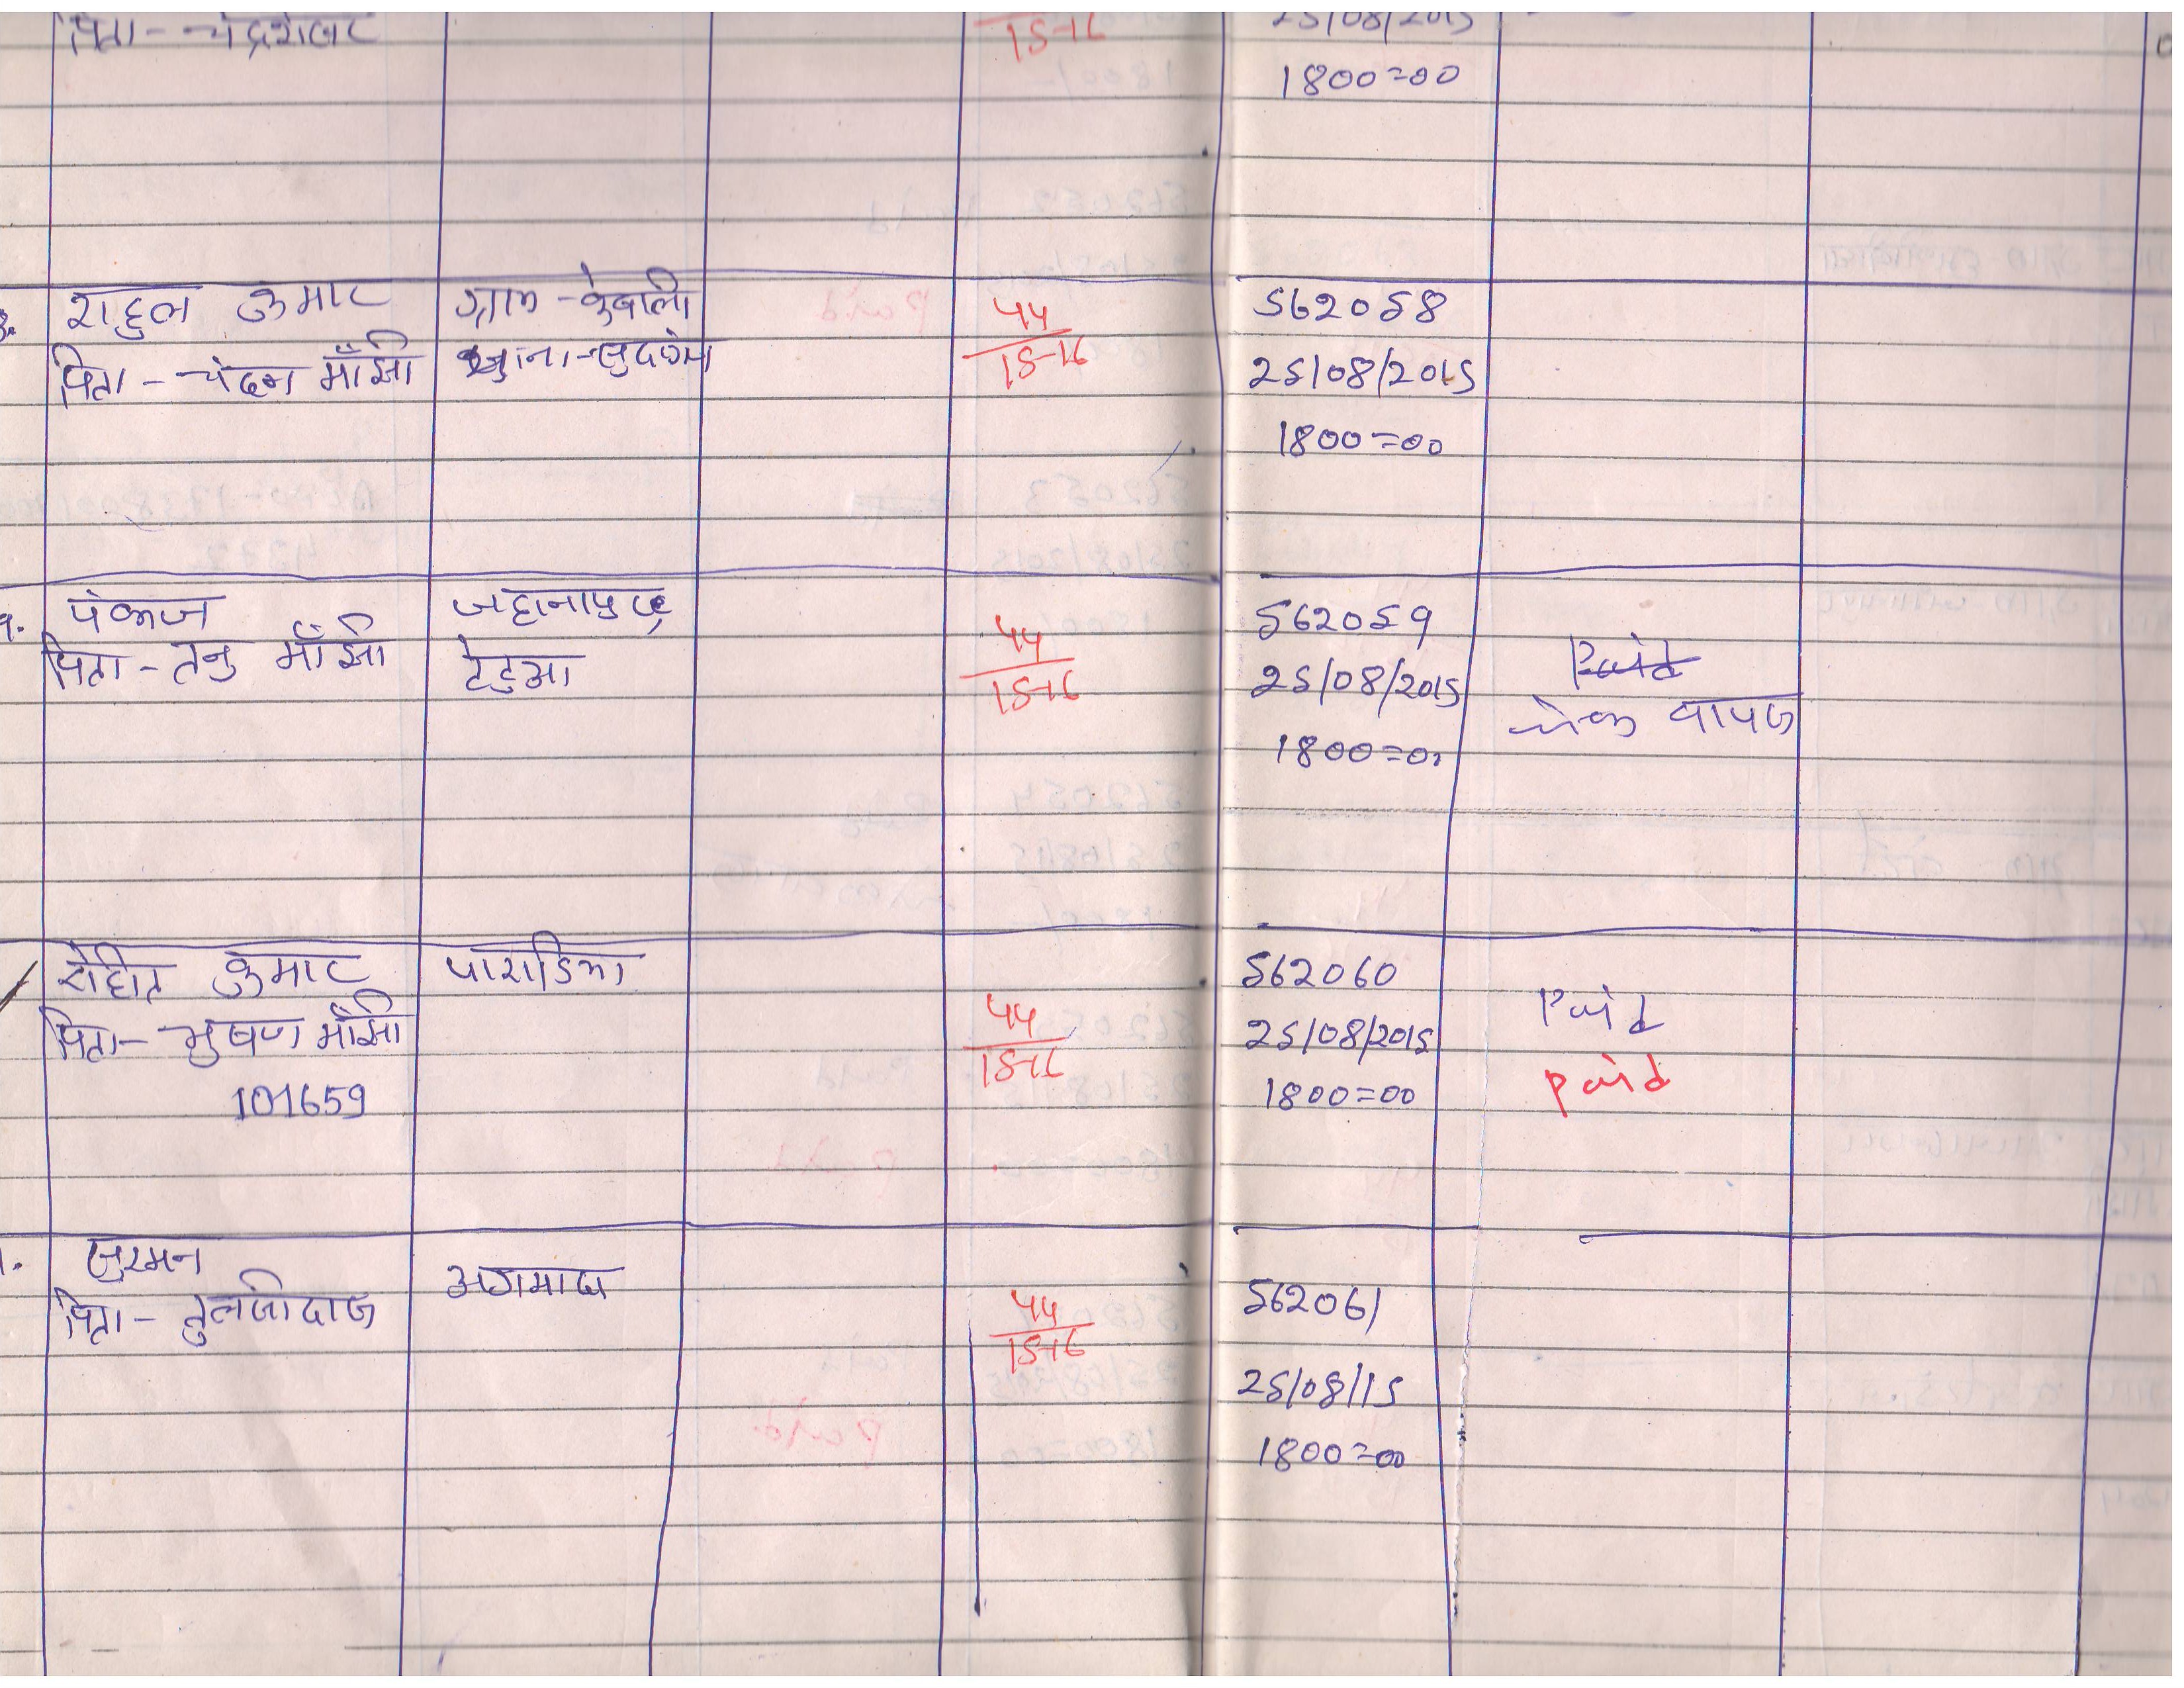 पिता - चंद्रशेखर
15-16
25/08/2015
1800=00
राहुल कुमार
पिता - चंदन माँझी
ग्राम - केवाली
44
15-16
562058
25/08/2015
1800=00
पंकज
पिता - तनु माँझी
जहानापुर,
टेडुआ
44
15-16
562059
25/08/2015
1800=00
Paid
चेक वापस
रोहित कुमार
पिता - भुषण माँझी
101659
पाराडिया
44
15-16
562060
25/08/2015
1800=00
Paid
paid
सुरमन
पिता - तुलसीदास
अगमाडा
44
15-16
562061
25/08/15
1800=00